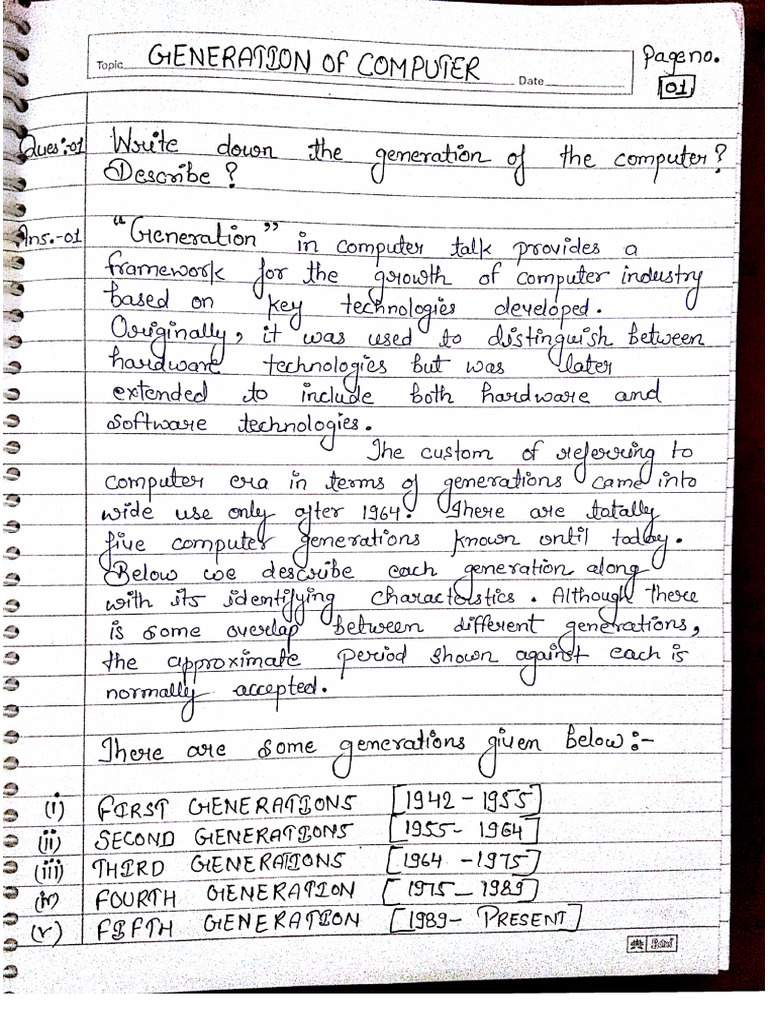 Topic GENERATION OF COMPUTER Date
Page no.
01
Ques:-01 Write down the generation of the computer?
Describe?
Ans.-01 "Generation" in computer talk provides a
framework for the growth of computer industry
based on key technologies developed.
Originally, it was used to distinguish between
hardware technologies but was later
extended to include both hardware and
software technologies.
The custom of referring to
computer era in terms of generations came into
wide use only after 1964. There are totally
five computer generations known until today.
Below we describe each generation along
with its identifying charactoristics. Although there
is some overlap between different generations,
the approximate period shown against each is
normally accepted.
There are some generations given below:-
(i) FIRST GENERATIONS [1942-1955]
(ii) SECOND GENERATIONS [1955-1964]
(iii) THIRD GENERATIONS [1964-1975]
(iv) FOURTH GENERATION [1975-1989]
(v) FIFTH GENERATION [1989-PRESENT]